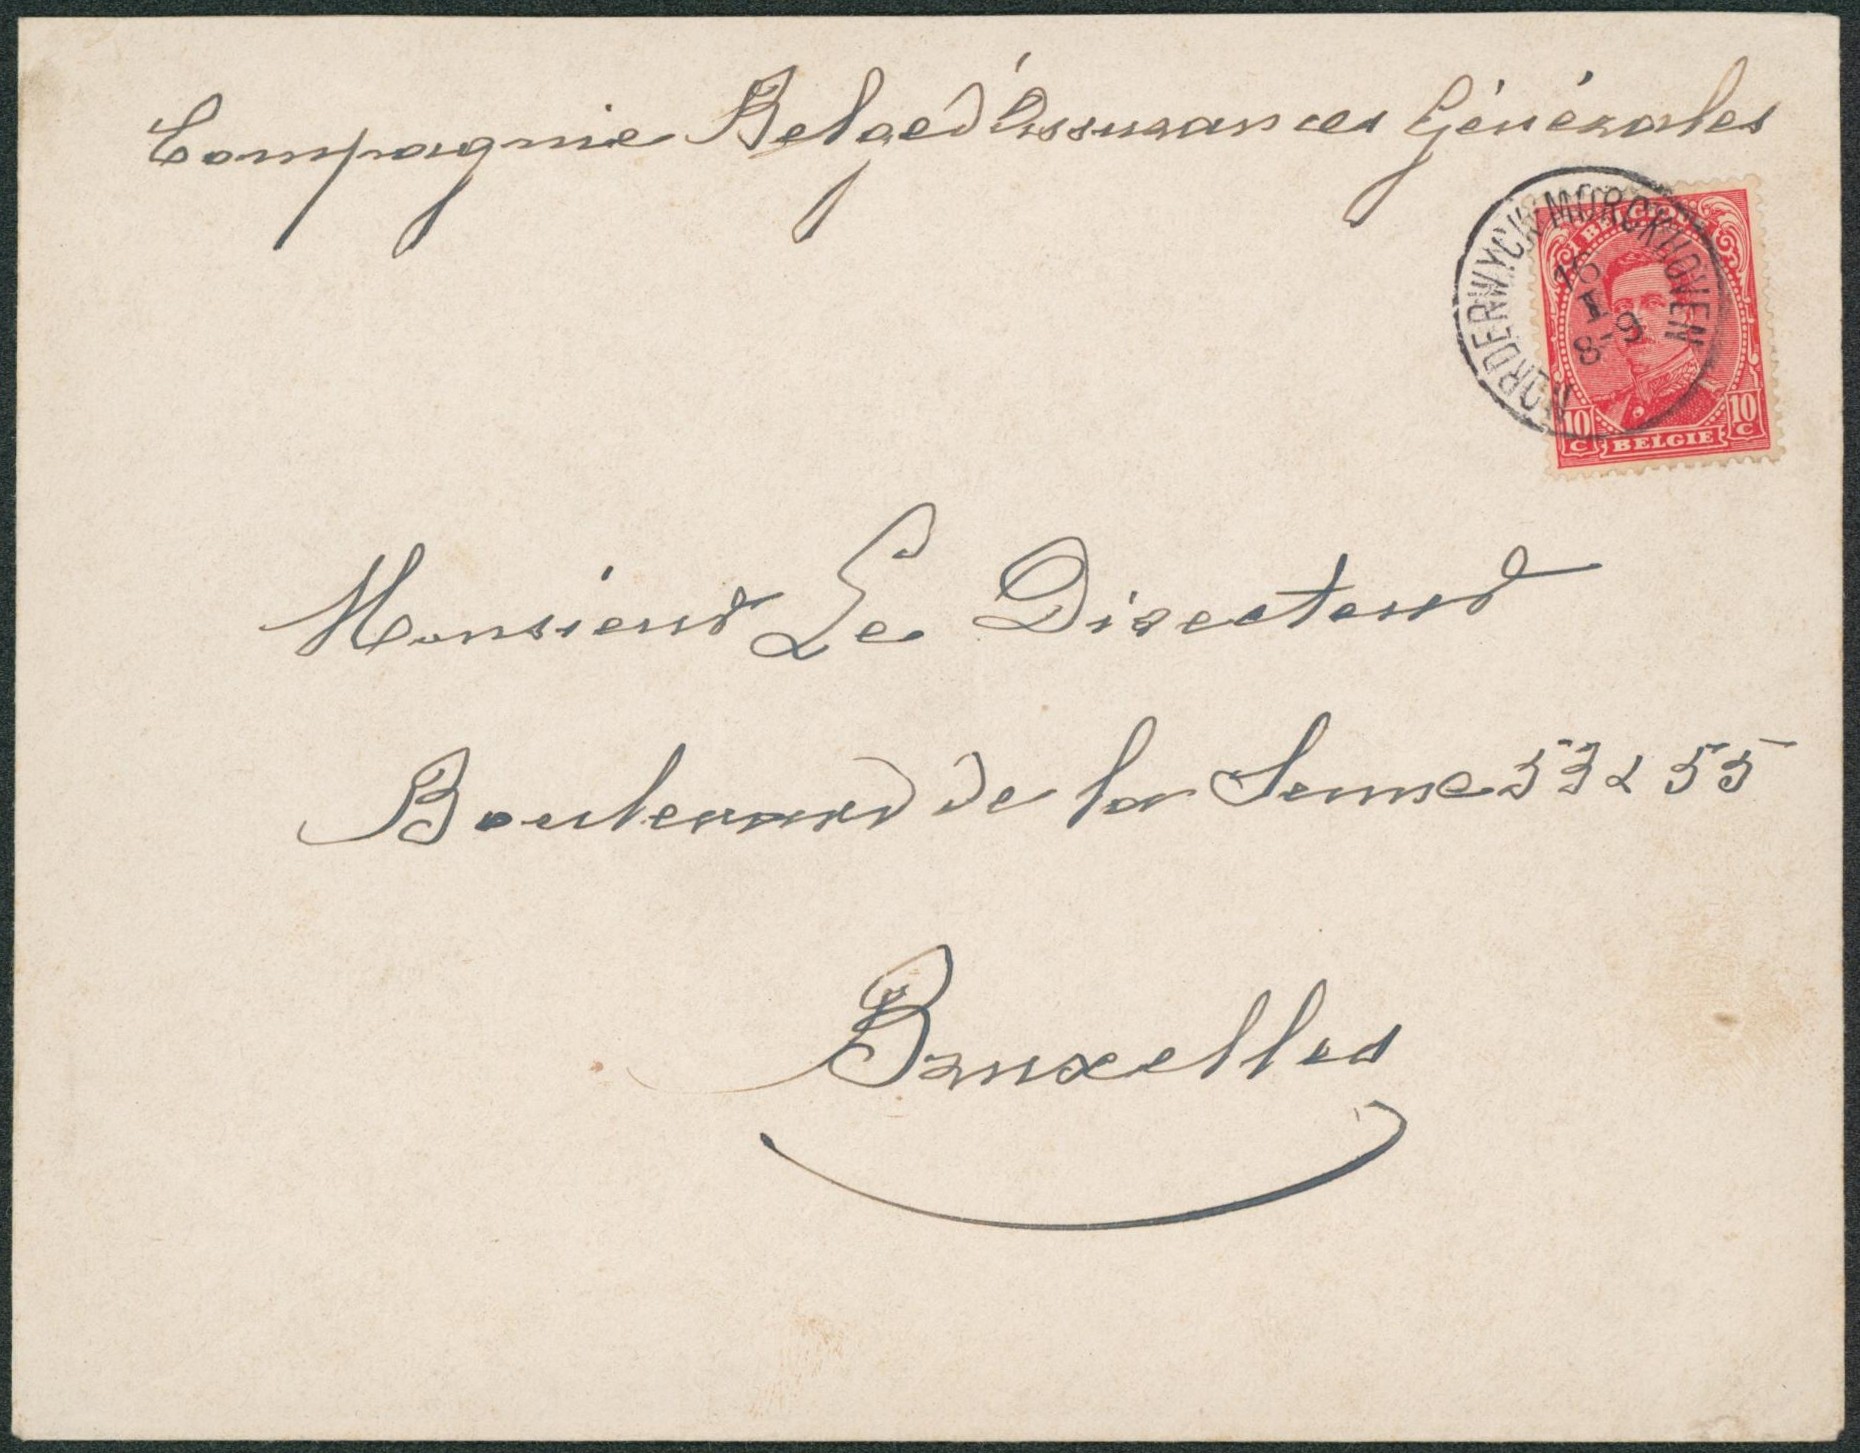 Compagnie Belge d'Assurances Générales
NORDERWYCK-MORCKHOVEN
16
I
8-9
10 C BELGIE 10 C
Monsieur Le Directeur
Boulevard de la Senne 53 à 55
Bruxelles